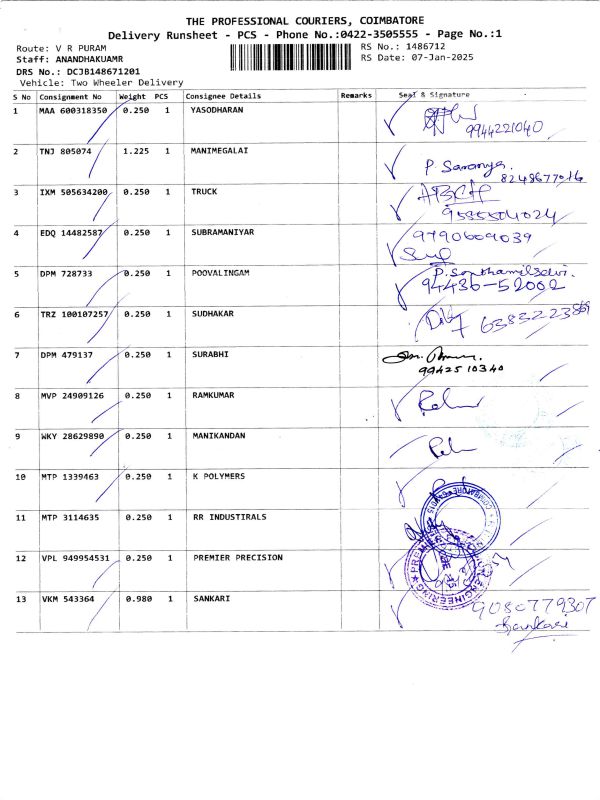 THE PROFESSIONAL COURIERS, COIMBATORE
Delivery Runsheet - PCS - Phone No.:0422-3505555 - Page No.:1
Route: V R PURAM RS No.: 1486712
Staff: ANANDHAKUAMR RS Date: 07-Jan-2025
DRS No.: DCJB148671201
Vehicle: Two Wheeler Delivery
S No Consignment No Weight PCS Consignee Details Remarks Seal & Signature
1 MAA 600318350 0.250 1 YASODHARAN
9944221040
2 TNJ 805074 1.225 1 MANIMEGALAI
P. Saranya.
8248677016
3 IXM 505634200 0.250 1 TRUCK
9585504024
4 EDQ 14482587 0.250 1 SUBRAMANIYAR 9790609039
5 DPM 728733 0.250 1 POOVALINGAM
94436-52002
6 TRZ 100107257 0.250 1 SUDHAKAR
6383223869
7 DPM 479137 0.250 1 SURABHI
9942510340
8 MVP 24909126 0.250 1 RAMKUMAR
9 WKY 28629890 0.250 1 MANIKANDAN
10 MTP 1339463 0.250 1 K POLYMERS
11 MTP 3114635 0.250 1 RR INDUSTIRALS
12 VPL 949954531 0.250 1 PREMIER PRECISION
13 VKM 543364 0.980 1 SANKARI 9080779307
Sankari